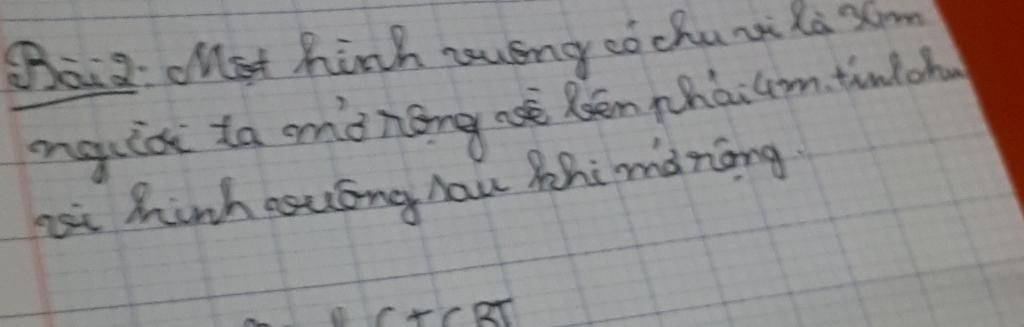 Bài 2: Một hình vuông có chu vi là m
người ta mở rộng về bên phải 4m. tính chu
vi hình vuông sau khi mở rộng.